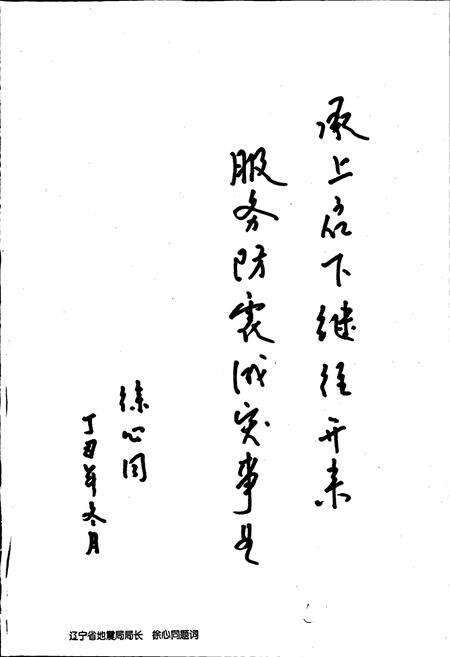 承上启下继往开来
服务防震减灾事业
徐心同
丁丑年冬月
辽宁省地震局局长 徐心同题词